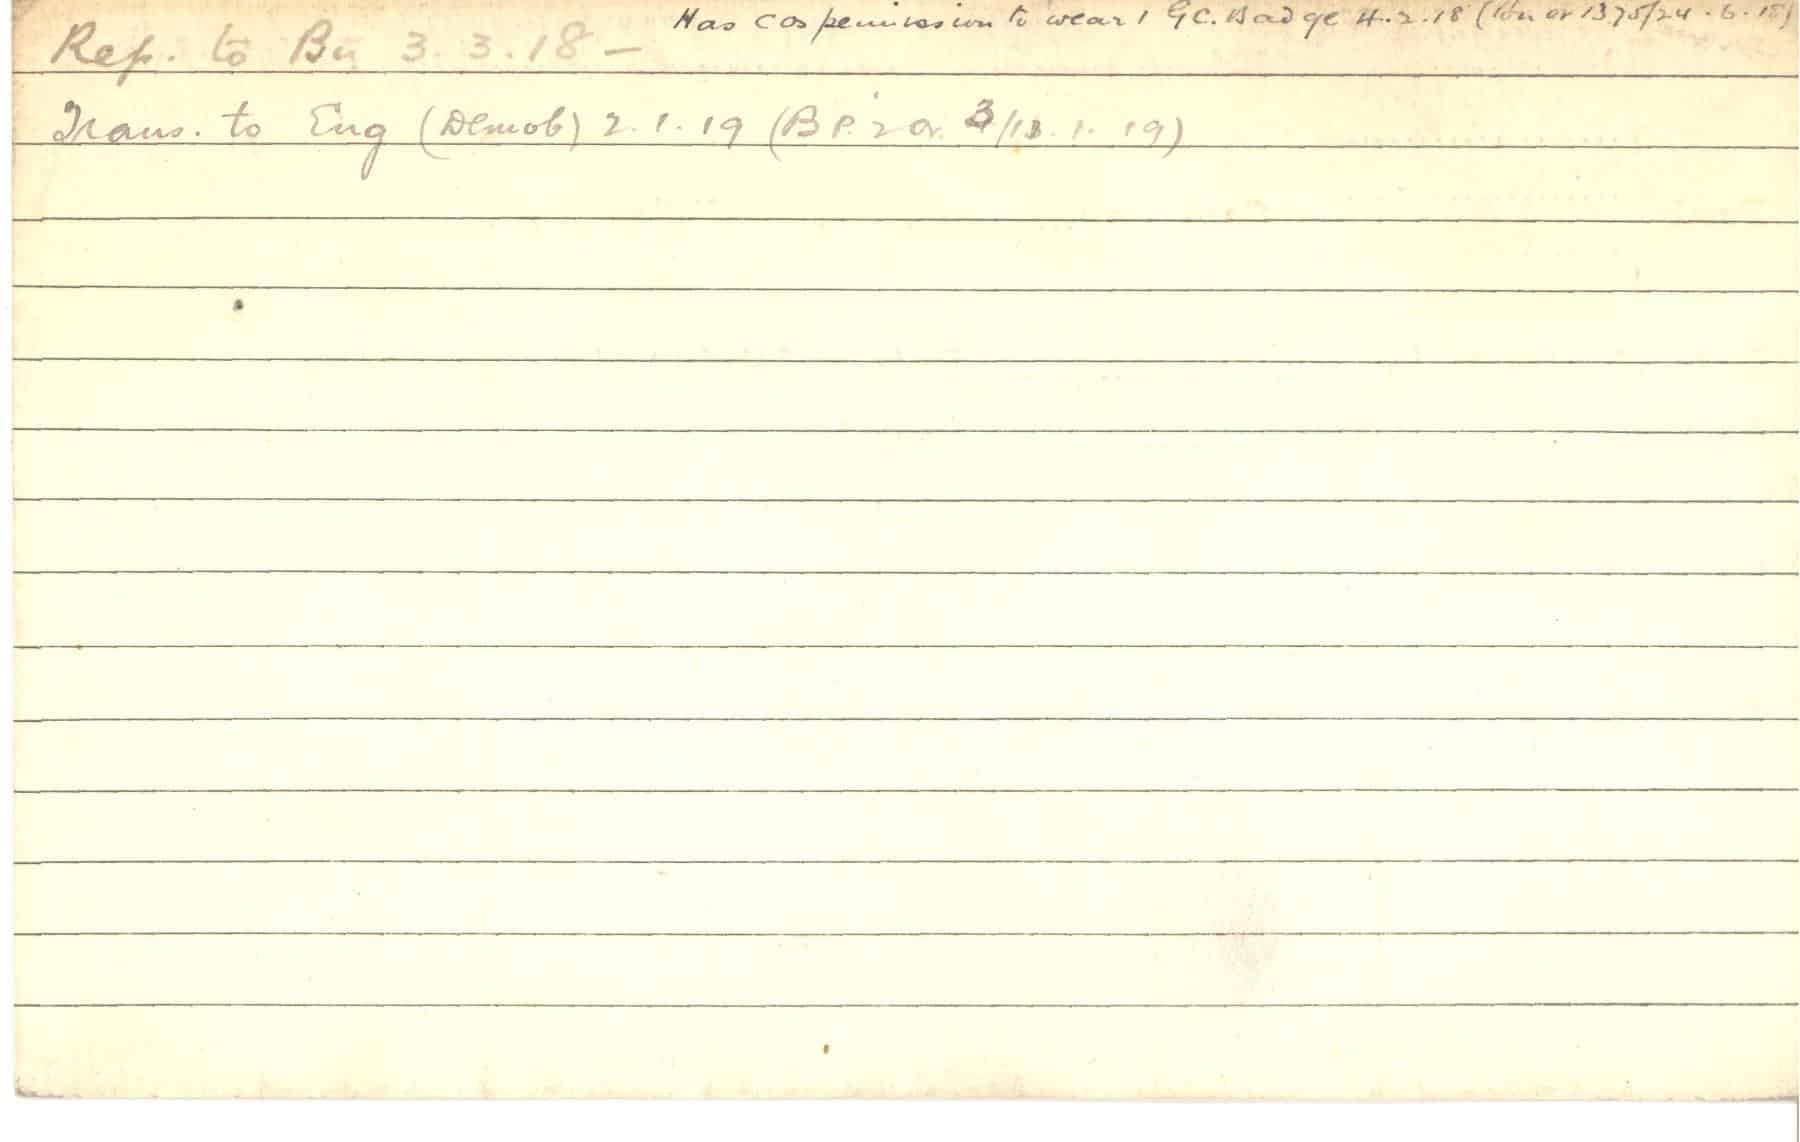 Has cos permission to wear 1 G.C. Badge 4.2.18 ( or 1375/24.6.18)
Rep. to Bn 3.3.18 —
Trans. to Eng (Demob) 2.1.19 (B P. 2 or. 3/13.1.19)